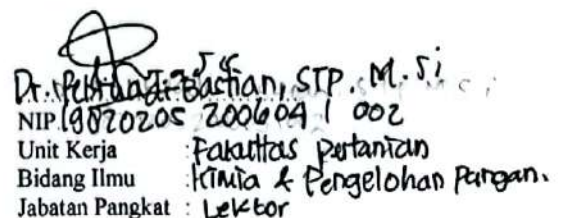 Dr. Bastian, STP. M.Si
NIP. 19820205 200604 1 002
Unit Kerja : Fakultas Pertanian
Bidang Ilmu : Kimia & Pengelohan Pangan.
Jabatan Pangkat : Lektor